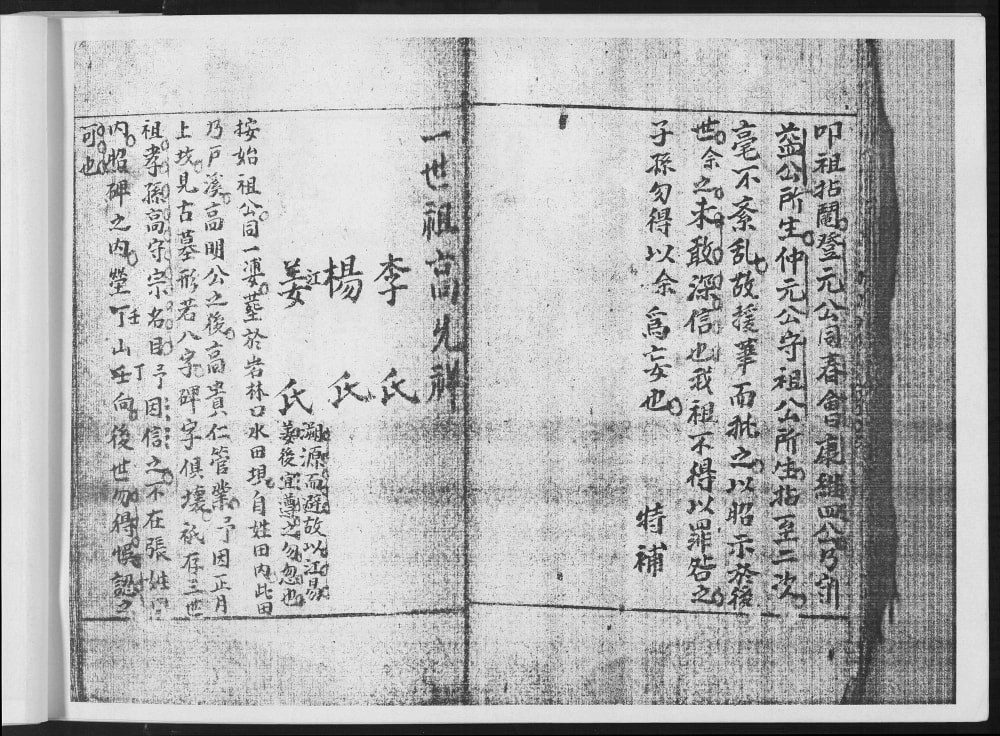 叩祖拈鬮登元公同春會康繼四公乃守
益公所生仲元公守祖公所生拈至二次
毫不紊乱故援筆而批之以昭示於後
世余之未敢深信也我祖不得以罪咎之
子孫勿得以余為妄也
特補
一世祖高先祥
李氏
楊氏
江
姜氏
溯源而辟故以江易
姜後宜遵之勿忽也
按始祖公同一連塟於岩林口水田垻自姓田内此田
乃戸溪高明公之後高貴仁管業予因正月
上坟見古墓形若八字碑字俱壞衹存三世
祖孝孫高守宗名目予因信之不在張姓
内昭碑之内塋丁山壬向後世勿得悞認之
壬丁
可也